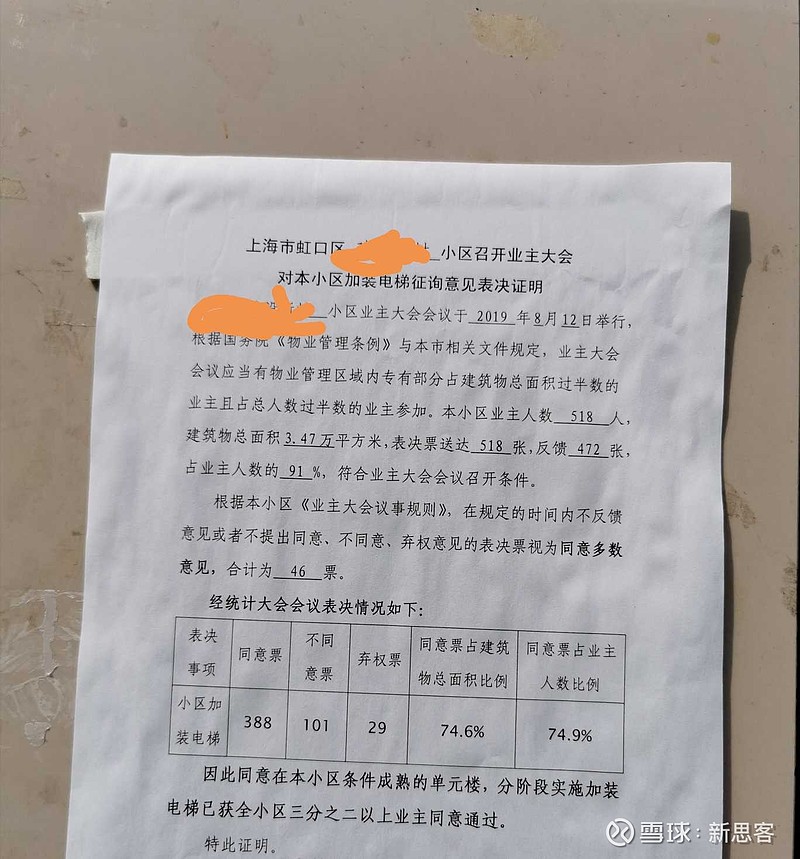 上海市虹口区 小区召开业主大会
对本小区加装电梯征询意见表决证明
小区业主大会会议于 2019 年8月12日举行，
根据国务院《物业管理条例》与本市相关文件规定，业主大会
会议应当有物业管理区域内专有部分占建筑物总面积过半数的
业主且占总人数过半数的业主参加。本小区业主人数 518 人，
建筑物总面积3.47万平方米，表决票送达 518 张，反馈 472 张，
占业主人数的 91 %，符合业主大会会议召开条件。
根据本小区《业主大会议事规则》，在规定的时间内不反馈
意见或者不提出同意、不同意、弃权意见的表决票视为同意多数
意见，合计为 46 票。
经统计大会会议表决情况如下：
表决事项 同意票 不同意票 弃权票 同意票占建筑物总面积比例 同意票占业主人数比例
小区加装电梯 388 101 29 74.6% 74.9%
因此同意在本小区条件成熟的单元楼，分阶段实施加装
电梯已获全小区三分之二以上业主同意通过。
特此证明。
雪球：新思客